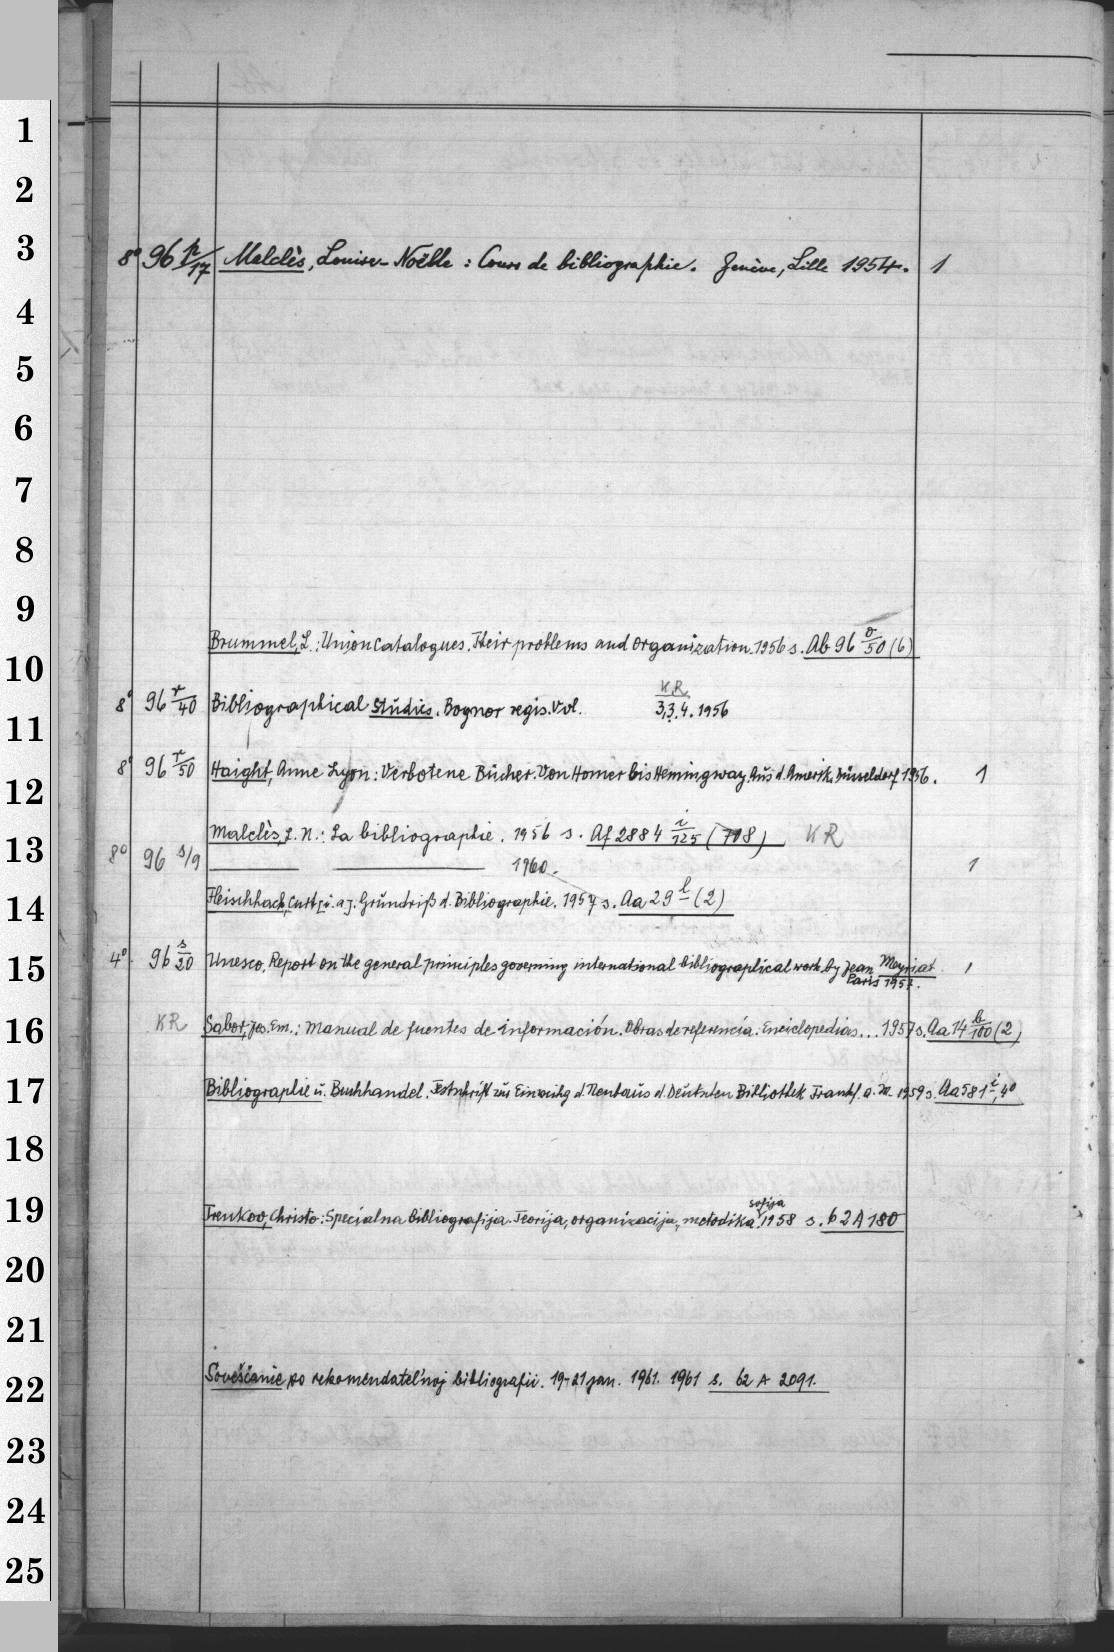 1
2
3
8° 96 p/17 Malclès, Louise-Noëlle : Cours de bibliographie. Genève, Lille 1954. 1
4
5
6
7
8
9
Brummel, L.: Union catalogues. Their problems and organization. 1956 s. Ab 96 o/50 (6)
10
KR
8° 96 r/40 Bibliographical Studies. Bognor regis. Vol. 3,3.4. 1956
11
8° 96 r/50 Haight, Anne Lyon: Verbotene Bücher. Von Homer bis Hemingway. Aus d. Amerik. Düsseldorf 1956. 1
12
Malclès, L. N.: La bibliographie. 1956 s. Af 2884 i/125 (708) KR
13
8° 96 s/9 1960. 1
Fleischhack, Curt [u. a.]. Grundriß d. Bibliographie. 1957 s. Aa 29 l (2)
14
4° 96 s/20 Unesco. Report on the general principles governing international bibliographical work by Jean Meyriat 1
Paris 1957.
15
KR Sabor, Jos. Em.: Manual de fuentes de información. Obras de referencia: Enciclopedias... 1957 s. Aa 14 b/100 (2)
16
Bibliographie u. Buchhandel. Festschrift zur Einweihg d. Neubaus d. Deutschen Bibliothek Frankf. a. M. 1959 s. Aa 581 i, 4°
17
18
sofija
19
Trenkov, Christo: Specialna bibliografija. Teorija, organizacija, metodika. 1958 s. 62 A 180
20
21
Soveščanie po rekomendatel'noj bibliografii. 19-21 jan. 1961. 1961 s. 62 A 2091.
22
23
24
25